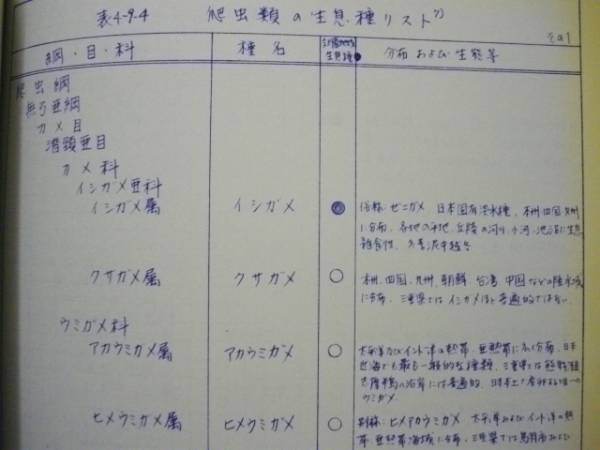 表4-9.4 爬虫類の生息種リスト
その1
綱・目・科 種名 生息種 分布および生態等
爬虫綱
無弓亜綱
カメ目
潜頸亜目
カメ科
イシガメ亜科
イシガメ属 イシガメ 俗称:ゼニガメ 日本固有淡水種、本州 四国 九州
に分布、各地の平地、丘陵の河川、小河、池沼に生息
雑食性
クサガメ属 クサガメ 本州、四国、九州、朝鮮、台湾、中国などの陸水域
に分布、三重県ではイシガメほど普遍的ではない。
ウミガメ科
アカウミガメ属 アカウミガメ 太平洋及びインド洋の熱帯、亜熱帯に広く分布、日本
近海でも最も一般的な種類、三重県では熊野灘
志摩半島の沿岸には普遍的、日本本土で産卵する唯一の
ウミガメ。
ヒメウミガメ属 ヒメウミガメ 別称:ヒメアカウミガメ 太平洋およびインド洋の熱
帯、亜熱帯海域に分布、三重県では